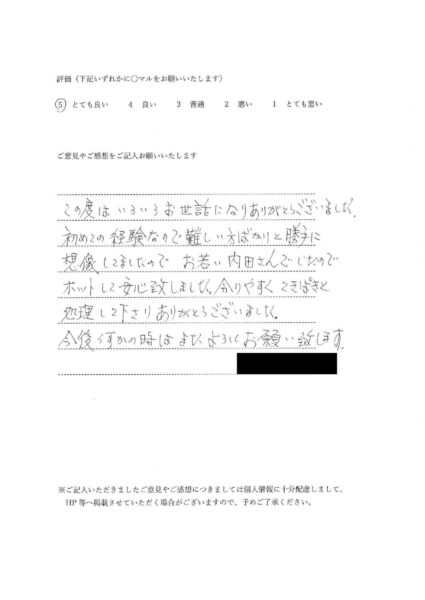 評価（下記いずれかに○マルをお願いいたします）
5 とても良い 4 良い 3 普通 2 悪い 1 とても悪い
ご意見やご感想をご記入お願いいたします
この度はいろいろお世話になりありがとうございました。
初めての経験なので難しい方ばかりと勝手に
想像してましたので お若い内田さんでしたので
ホットして安心致しました。分りやすく てきぱきと
処理して下さりありがとうございました。
今後何かの時はまたよろしくお願い致します。
※ご記入いただきましたご意見やご感想につきましては個人情報に十分配慮しまして、
HP 等へ掲載させていただく場合がございますので、予めご了承ください。